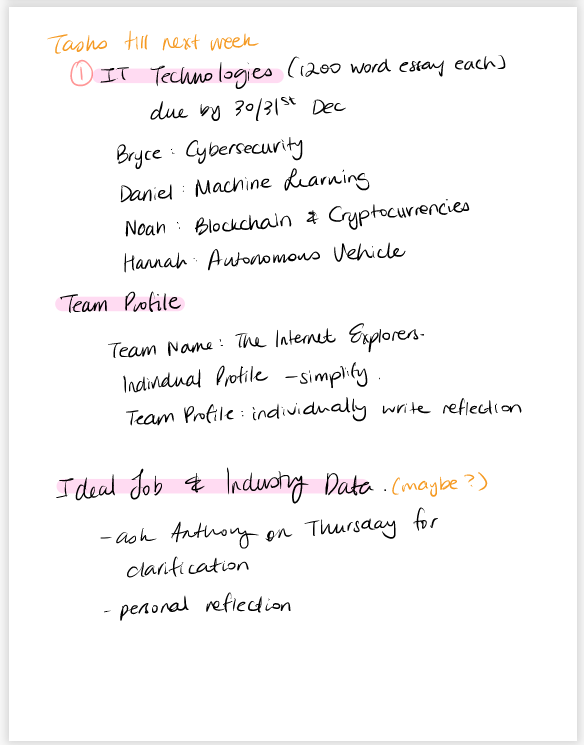 Tasks till next week
① IT Technologies (1200 word essay each)
due by 30/31st Dec
Bryce: Cybersecurity
Daniel: Machine Learning
Noah: Blockchain & Cryptocurrencies
Hannah: Autonomous Vehicle
Team Profile
Team Name: The Internet Explorers.
Individual Profile - simplify.
Team Profile: individually write reflection
Ideal Job & Industry Data. (maybe?)
- ask Anthony on Thursday for
clarification
- personal reflection